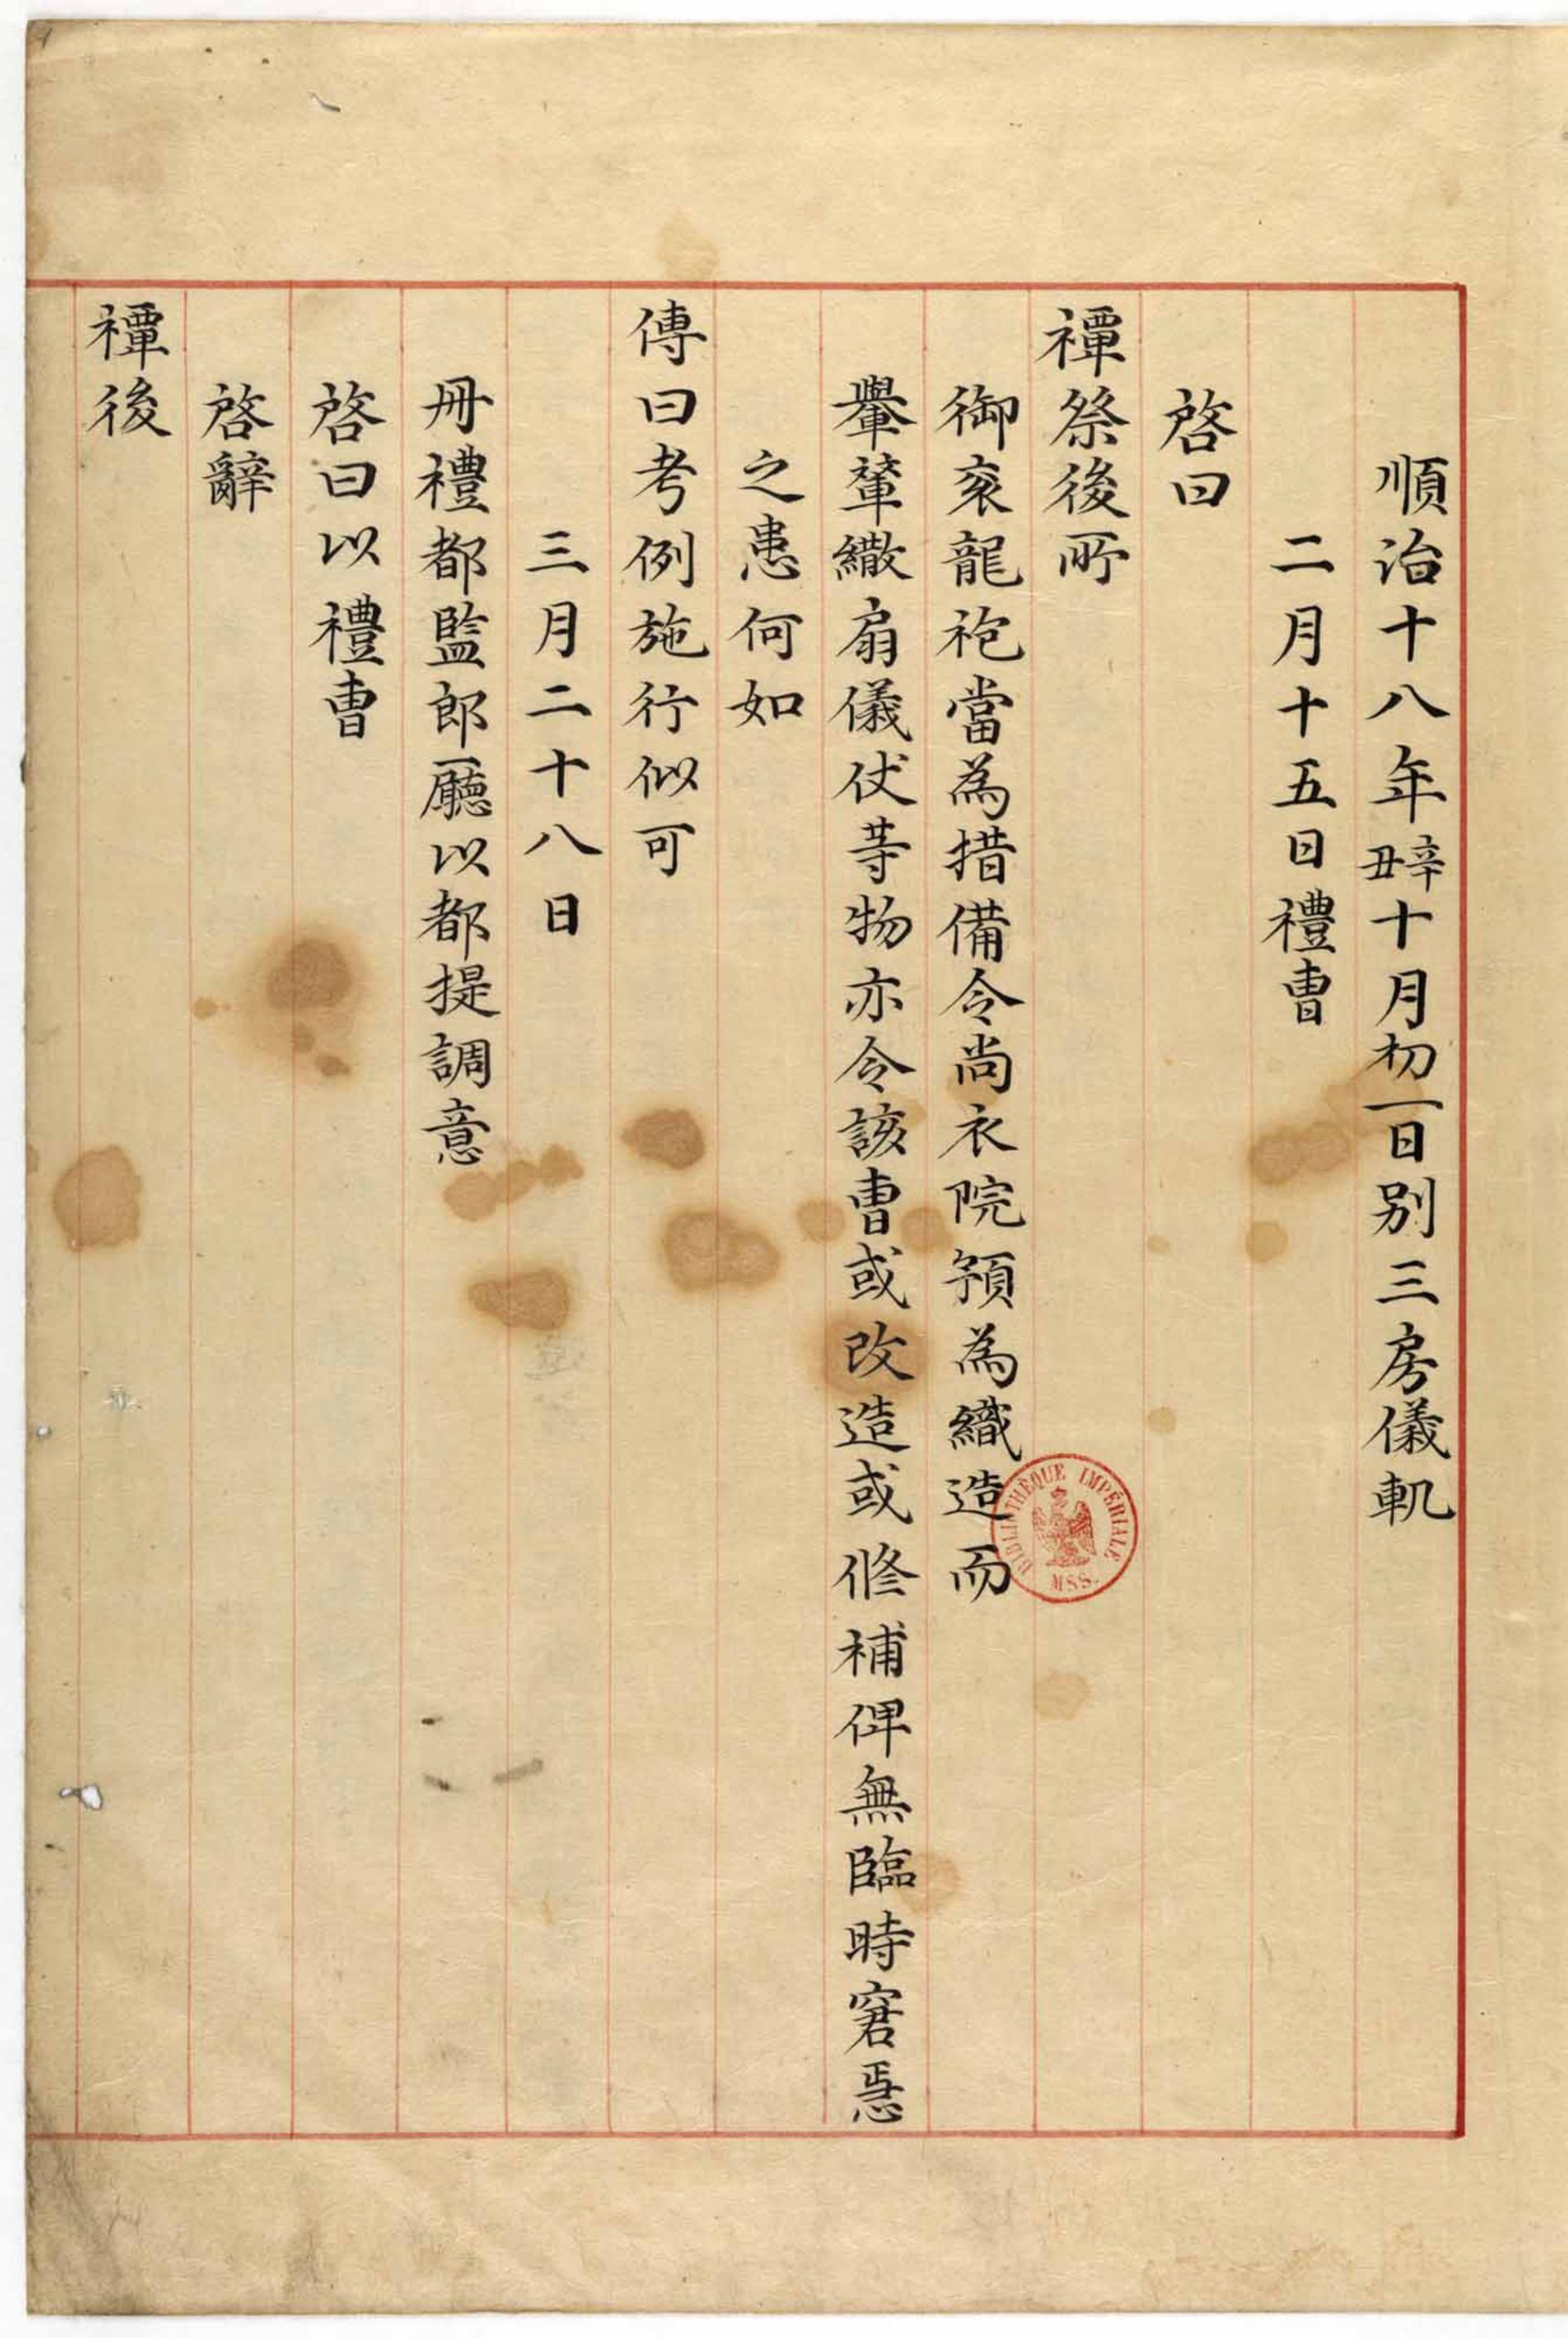 順治十八年辛丑十月初一日別三房儀軌
二月十五日禮曺
啓曰
禫祭後所
御衮龍袍當為措備令尚衣院預為織造而
轝輦繖扇儀仗等物亦令該曺或改造或修補俾無臨時窘急
之患何如
傳曰考例施行似可
三月二十八日
冊禮都監郎廳以都提調意
啓曰以禮曺
啓辭
禫後
BIBLIOTHÈQUE IMPÉRIALE MSS.